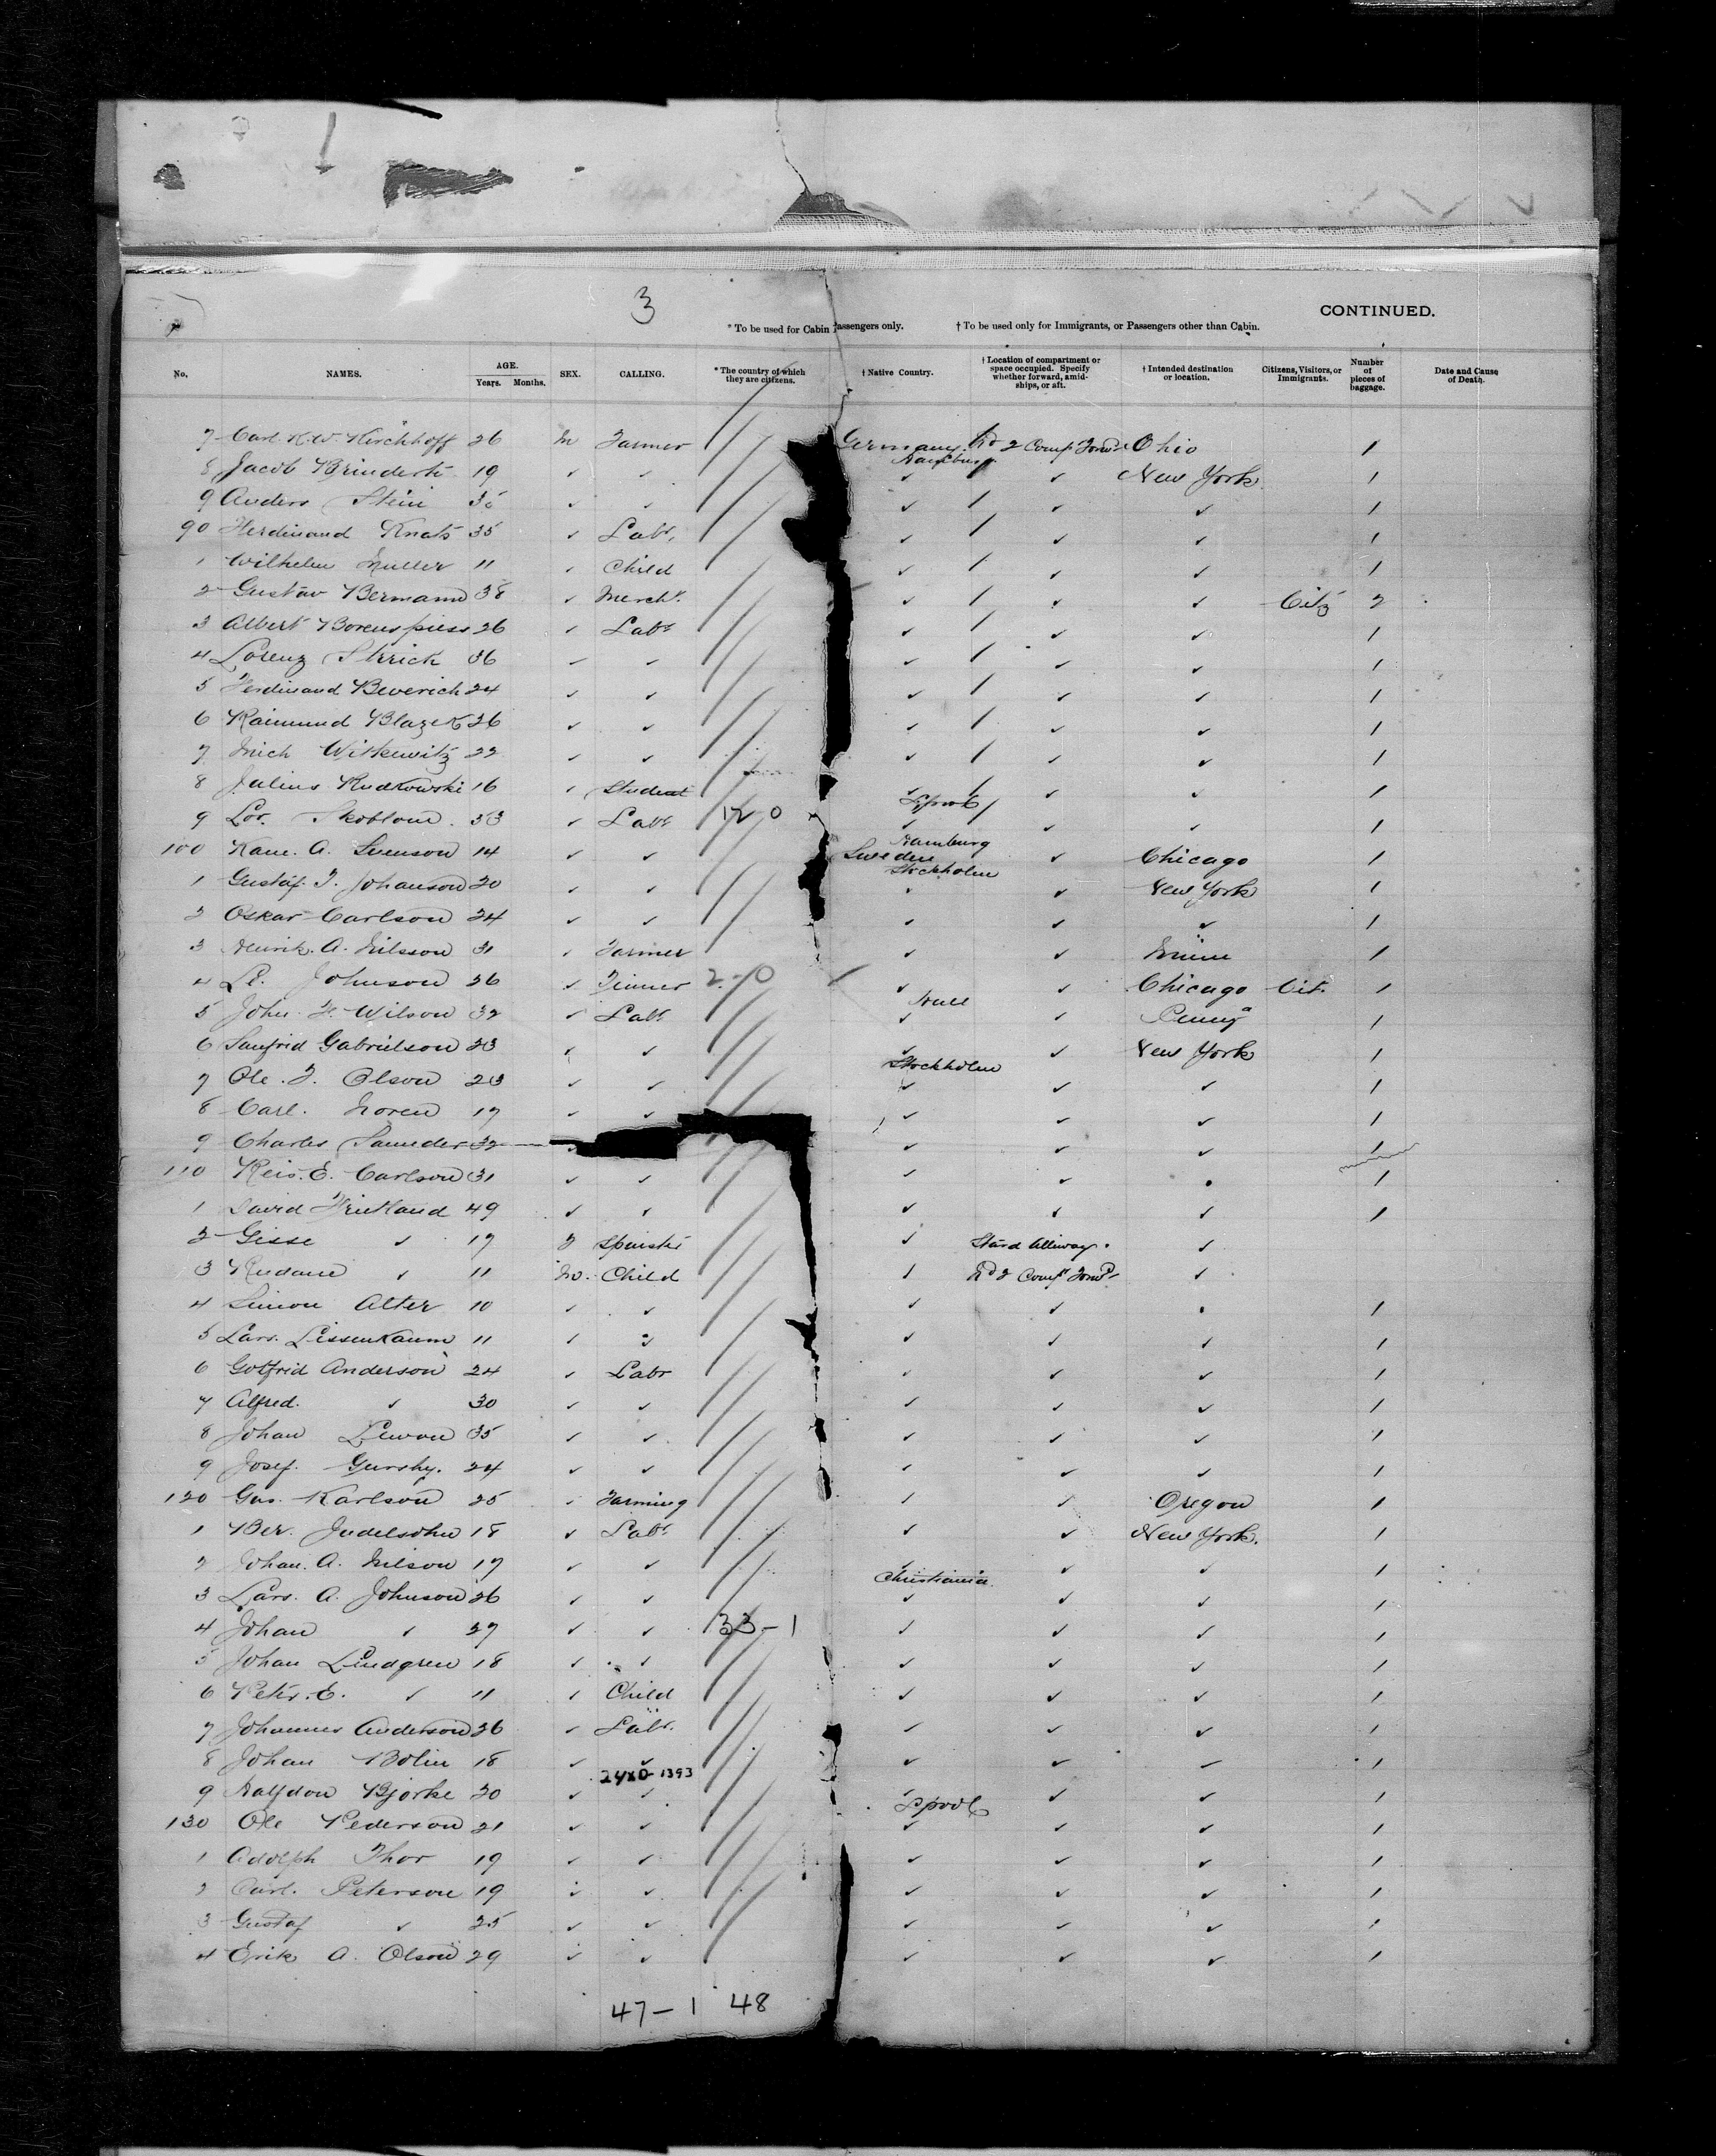 3
CONTINUED.
* To be used for Cabin Passengers only. † To be used only for Immigrants, or Passengers other than Cabin.
No. NAMES. AGE. Years. Months. SEX. CALLING. * The country of which they are citizens. † Native Country. † Location of compartment or space occupied. Specify whether forward, amidships, or aft. † Intended destination or location. Citizens, Visitors, or Immigrants. Number of pieces of baggage. Date and Cause of Death.
7 Carl. K.W. Kirchhoff 26 M Farmer Germany. Hamburg. 2 Compt Forwd Ohio 1
8 Jacob 19 ✓ ✓ ✓ ✓ New York 1
9 Anders Stein 35 ✓ ✓ ✓ ✓ ✓ 1
90 Ferdinand Knats 35 ✓ Labr. ✓ ✓ ✓ 1
1 Wilhelm Muller 11 ✓ Child ✓ ✓ ✓ 1
2 Gustav Bermann 38 ✓ Mercht. ✓ ✓ ✓ Citz 2
3 Albert 26 ✓ Labr ✓ ✓ ✓ 1
4 Lorenz Strick 36 ✓ ✓ ✓ ✓ ✓ 1
5 Ferdinand Beverich 24 ✓ ✓ ✓ ✓ ✓ 1
6 Raimund Blazek 26 ✓ ✓ ✓ ✓ ✓ 1
7 Mich Witkewitz 22 ✓ ✓ ✓ ✓ ✓ 1
8 Julius Rudkowski 16 ✓ Student ✓ ✓ ✓ 1
9 Lor. Skoblom. 33 ✓ Labr 12-0 Lpool ✓ ✓ ✓ 1
100 A. Svenson 14 ✓ ✓ Hamburg Sweden Stockholm ✓ Chicago 1
1 Gustaf. F. Johanson 20 ✓ ✓ ✓ ✓ New York 1
2 Oskar Carlson 24 ✓ ✓ ✓ ✓ ✓ 1
3 Henrik. A. Nilsson 31 ✓ Farmer ✓ ✓ Minn 1
4 Johnson 26 ✓ Tinner 2-0 ✓ ✓ Chicago Cit. 1
5 John F. Wilson 32 ✓ Labr Hull ✓ ✓ Penna 1
6 Sanfrid Gabrielson 23 ✓ ✓ ✓ ✓ New York 1
7 Ole. F. Olson 23 ✓ ✓ Stockholm ✓ ✓ ✓ 1
8 Carl. Noren 17 ✓ ✓ ✓ ✓ ✓ 1
9 Charles Saunder 32 ✓ ✓ ✓ 1
110 E. Carlson 31 ✓ ✓ ✓ ✓ ✓ 1
1 David 49 ✓ ✓ ✓ ✓ ✓ 1
2 Gisse ✓ 17 F Spinster ✓ Stard Alleway. ✓
3 ✓ 11 M. Child ✓ 2 Compt Forwd ✓
4 Simon Alter 10 ✓ ✓ ✓ ✓ ✓ 1
5 Lars. 11 ✓ ✓ ✓ ✓ ✓ 1
6 Gotfrid Anderson 24 ✓ Labr ✓ ✓ ✓ 1
7 Alfred. ✓ 30 ✓ ✓ ✓ ✓ ✓ 1
8 Johan 35 ✓ ✓ ✓ ✓ ✓ 1
9 Josef. Gursky. 24 ✓ ✓ ✓ ✓ ✓ 1
120 Gus. Karlson 25 ✓ Farming ✓ ✓ Oregon 1
1 Ber. Judelsohn 18 ✓ Labr ✓ ✓ New York. 1
2 Johan. A. Nilson 17 ✓ ✓ ✓ ✓ ✓ 1
3 Lars. A. Johnson 26 ✓ ✓ Christiania ✓ ✓ ✓ 1
4 Johan ✓ 27 ✓ ✓ 33-1 ✓ ✓ ✓ 1
5 Johan Lindgren 18 ✓ ✓ ✓ ✓ ✓ 1
6 Peter. E. ✓ 11 ✓ Child ✓ ✓ ✓ 1
7 Johannes Anderson 26 ✓ Labr. ✓ ✓ ✓ 1
8 Johan Bolin 18 ✓ ✓ ✓ ✓ ✓ 1
24x0-1393
9 Halfdon Bjorke 20 ✓ ✓ ✓ ✓ ✓ 1
130 Ole Pederson 21 ✓ ✓ Lpool ✓ ✓ ✓ 1
1 Adolph Thor 19 ✓ ✓ ✓ ✓ ✓ 1
2 Carl. Peterson 19 ✓ ✓ ✓ ✓ ✓ 1
3 Gustaf ✓ 25 ✓ ✓ ✓ ✓ ✓ 1
4 Erik A. Olson 29 ✓ ✓ ✓ ✓ ✓ 1
47-1 48